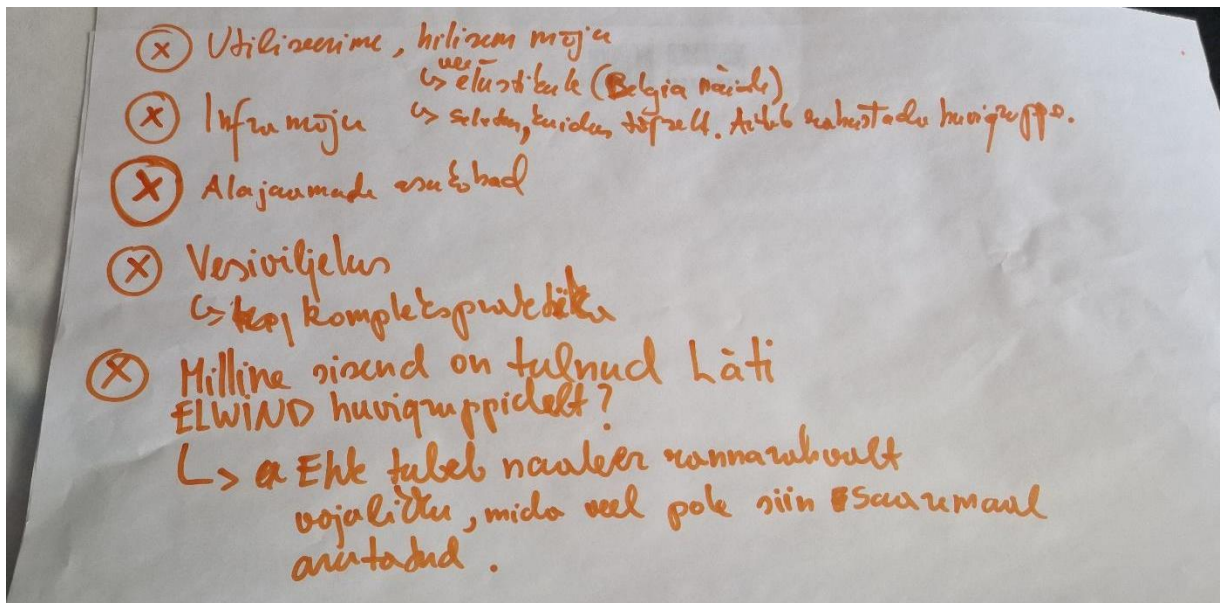 Utiliseerime, hilisem mõju
↳ vee elustikule (Belgia näide)
Inframõju ↳ seletus, kuidas tõpselt. Aitab rahustada huvigruppe.
Alajaamade asukohad
Vesiviljelus
↳ komplekspraktika
Milline sisend on tulnud Läti
ELWIND huvigruppidelt?
↳ Ehk tuleb naaber rannarahvalt
vajalikku, mida veel pole siin Saaremaal
arutatud.